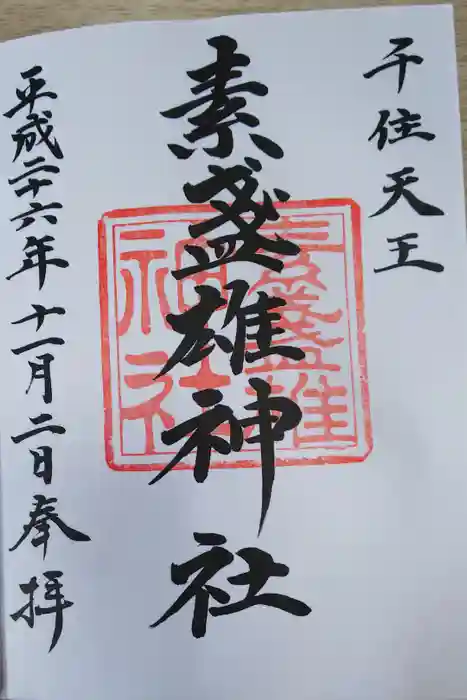 千住天王
素盞雄神社
平成二十六年十一月二日奉拝
素盞雄
神社